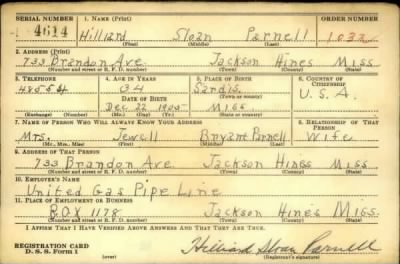 SERIAL NUMBER 1. NAME (Print) ORDER NUMBER
4614 Hilliard Sloan Parnell 1032
(First) (Middle) (Last)
2. ADDRESS (Print)
733 Brandon Ave. Jackson Hines Miss
(Number and street or R. F. D. number) (Town) (County) (State)
3. TELEPHONE 4. AGE IN YEARS 5. PLACE OF BIRTH 6. COUNTRY OF CITIZENSHIP
34 Sandis.
DATE OF BIRTH (Town or county) U.S.A.
Dec 22 1905 Miss
(Exchange) (Number) (Mo.) (Day) (Yr.) (State or country)
7. NAME OF PERSON WHO WILL ALWAYS KNOW YOUR ADDRESS 8. RELATIONSHIP OF THAT PERSON
Mrs. Jewell Bryant Parnell Wife
(Mr., Mrs., Miss) (First) (Middle) (Last)
9. ADDRESS OF THAT PERSON
733 Brandon Ave. Jackson Hines Miss
(Number and street or R. F. D. number) (Town) (County) (State)
10. EMPLOYER'S NAME
United Gas Pipe Line
11. PLACE OF EMPLOYMENT OR BUSINESS
BOX 1178 Jackson Hines Miss.
(Number and street or R. F. D. number) (Town) (County) (State)
I AFFIRM THAT I HAVE VERIFIED ABOVE ANSWERS AND THAT THEY ARE TRUE.
REGISTRATION CARD
D. S. S. Form 1 (over) Hilliard Sloan Parnell
(Registrant's signature)